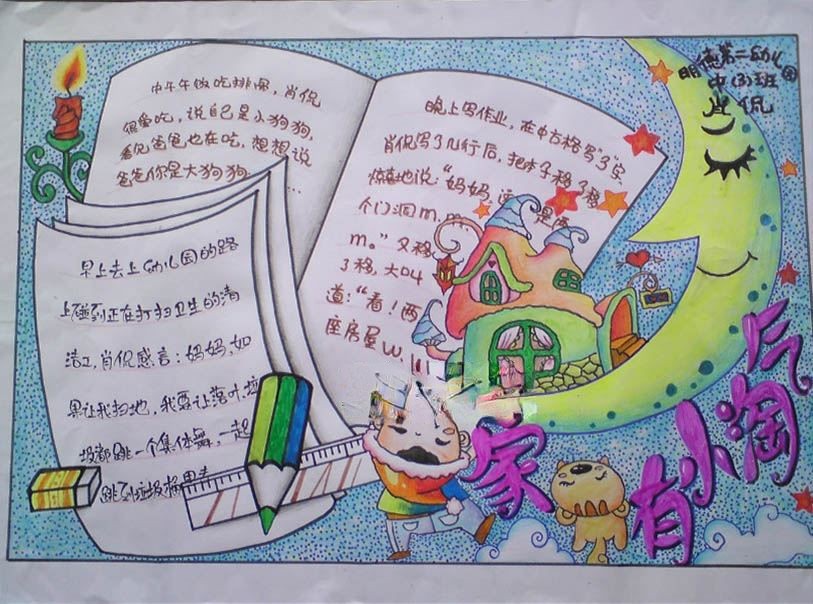 明德第二幼儿园
中(3)班
肖侃
中午午饭吃排骨，肖侃
很爱吃，说自己是小狗狗，
看见爸爸也在吃，想想说
爸爸你是大狗狗
晚上写作业，在中方格写"3"字
肖侃写了几行后，把本子移了移
惊喜地说："妈妈，这 是两
个门洞m.m.
m。"又移
了移，大叫
道："看！两
座房屋w.w
早上去上幼儿园的路
上碰到正在打扫卫生的清
洁工，肖侃感言：妈妈，如
果让我扫地，我要让落叶，垃
圾都跳一个集体舞，一起
跳到垃圾桶里去
家有小淘气